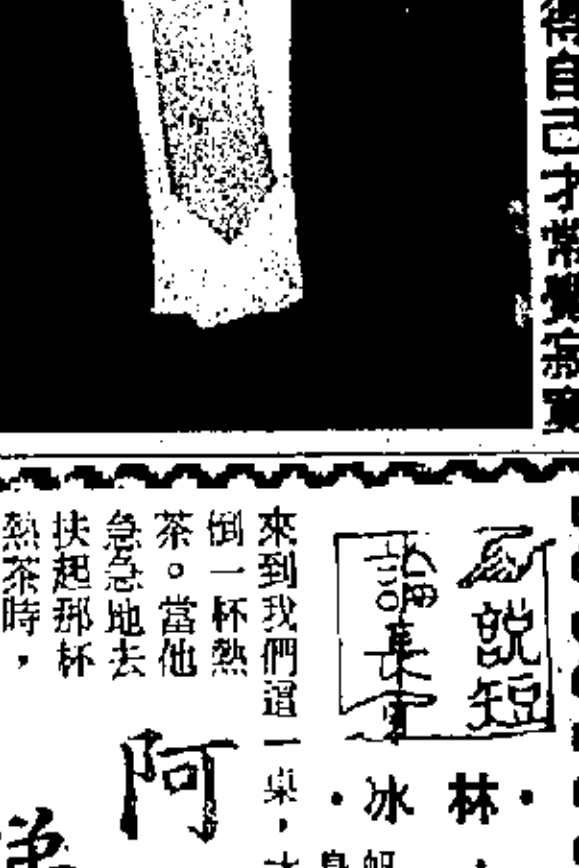 自己才常覺寂寞
說短
林冰
阿
來到我們這一桌，
倒一杯熱
茶。當他
急急地去
扶起那杯
熱茶時，